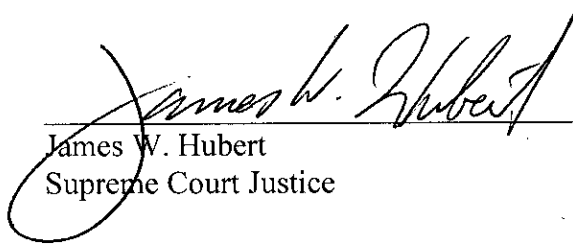 James W. Hubert
James W. Hubert
Supreme Court Justice